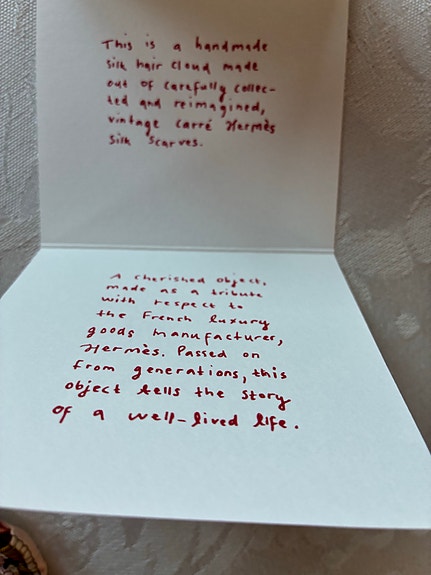 This is a handmade
silk hair cloud made
out of carefully collec-
ted and reimagined,
vintage carré Hermès
silk scarves.
A cherished object,
made as a tribute
with respect to
the French luxury
goods manufacturer,
Hermès. Passed on
from generations, this
object tells the story
of a well-lived life.